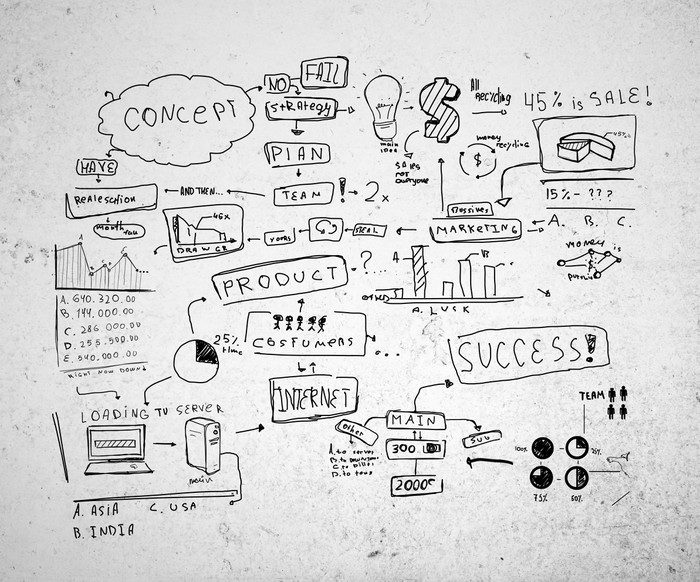 CONCEPT
NO
FAIL
STRATEGY
main
idea
All
RECYCLING
45% is SALE!
PLAN
SALES
NOT
EVERYONE
money
recycling
$
45%
HAVE
AND THEN...
TEAM ! 2x
15% - ???
month
46x
DRAW GR
years
MARKETING
A. B. C.
money is
A
B
A. LUCK
PRODUCT -?...
A. 640.320.00
B. 144.000.00
C. 286 000.00
D. 255.500.00
E. 540,000.00
RIGHT NOW DOWN
25%
time
COSTUMERS
SUCCESS!
INTERNET
LOADING TV SERVER
MAIN
other
SUB
300.
2000
TEAM
100%
25%
75%
50%
A. ASIA
C. USA
B. INDIA